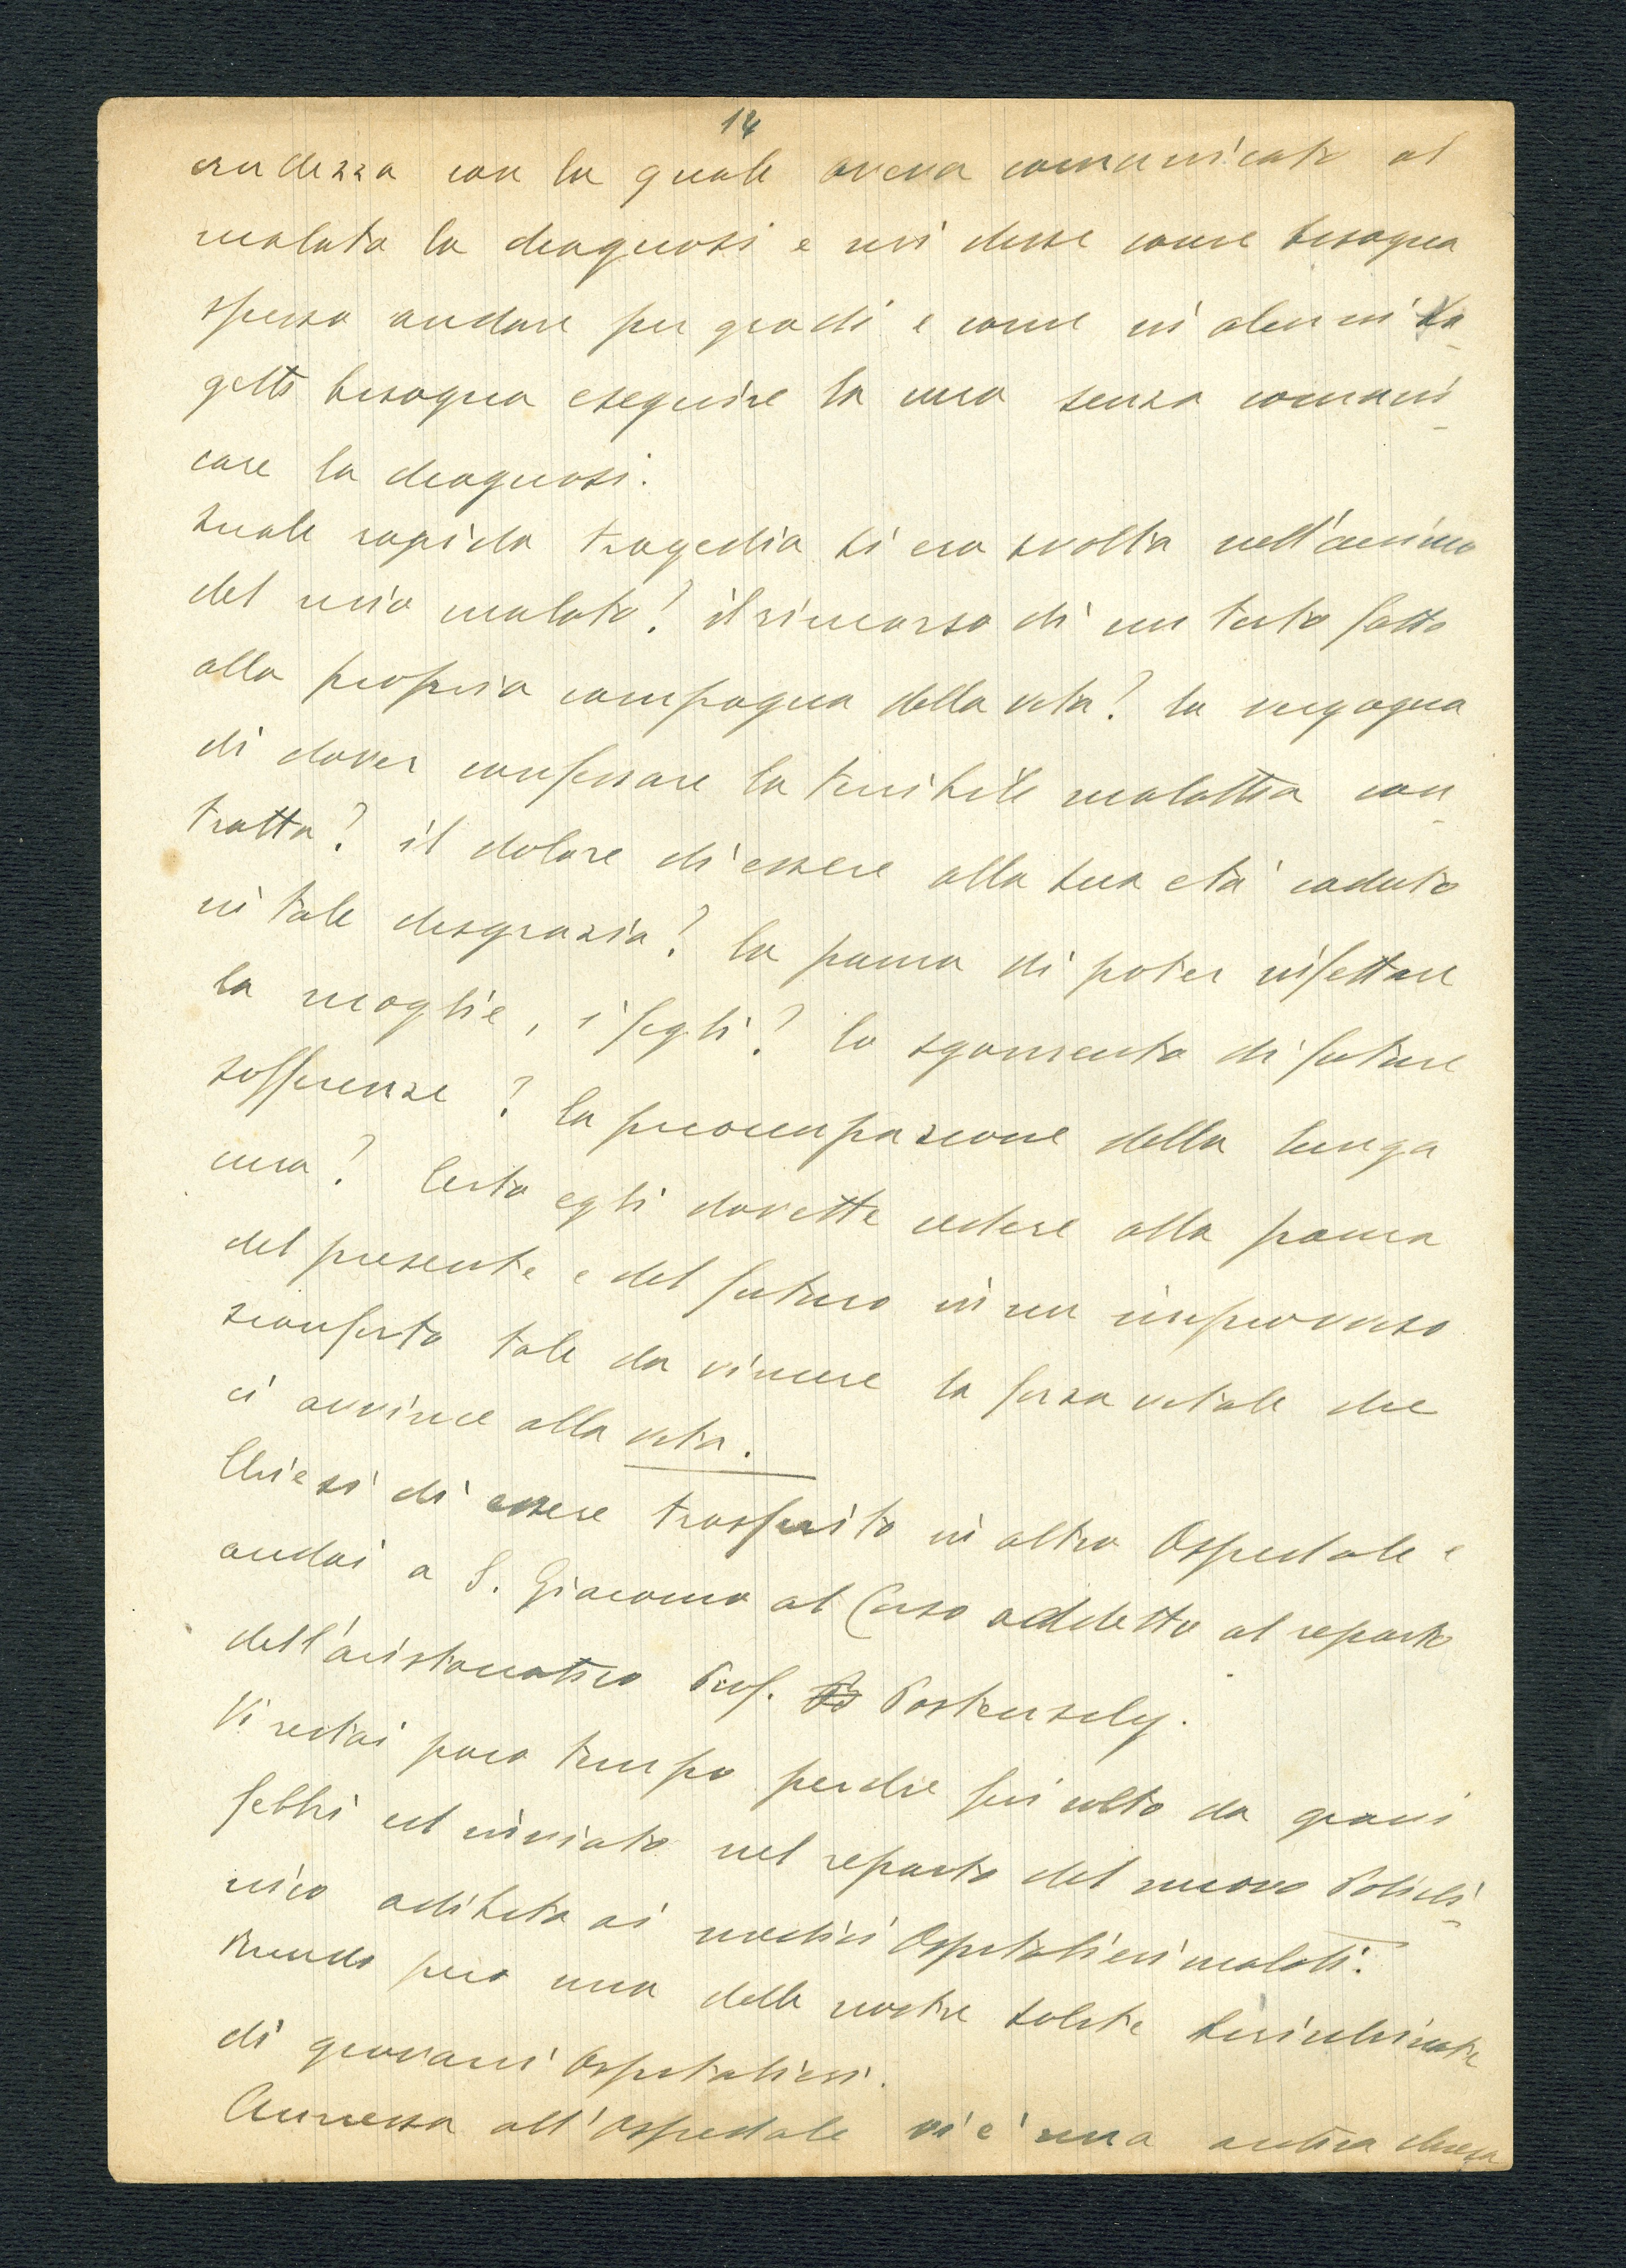 14
crudezza con la quale aveva comunicato al
malato la diagnosi e mi disse come bisogna
spesso andare per gradi e come in alcuni so
getti bisogna eseguire la cura senza comuni
care la diagnosi.
Quale rapida tragedia si era svolta nell'animo
del mio malato? il rimorso di un torto fatto
alla propria compagna della vita? la vergogna
di dover confessare la terribile malattia con
tratta? il dolore di essere alla sua età caduto
in tale disgrazia? la paura di poter infettare
la moglie, i figli? lo sgomento di future
sofferenze? la preoccupazione della lunga
cura? Certo egli dovette cedere alla paura
del presente e del futuro in un improvviso
sconforto tale da vincere la forza vitale che
ci avvince alla vita.
Chiesi di essere trasferito in altro Ospedale e
andai a S. Giacomo al Corso addetto al reparto
dell'aristocratico Prof. Postempsky.
Vi restai poco tempo perche fui colto da gravi
febbri ed inviato nel reparto del nuovo Policli
nico adibito ai medici Ospitalieri malati.
una delle nostre solite birichinate
di giovani Ospitalieri.
Annessa all'Ospedale vi è una antica chiesa